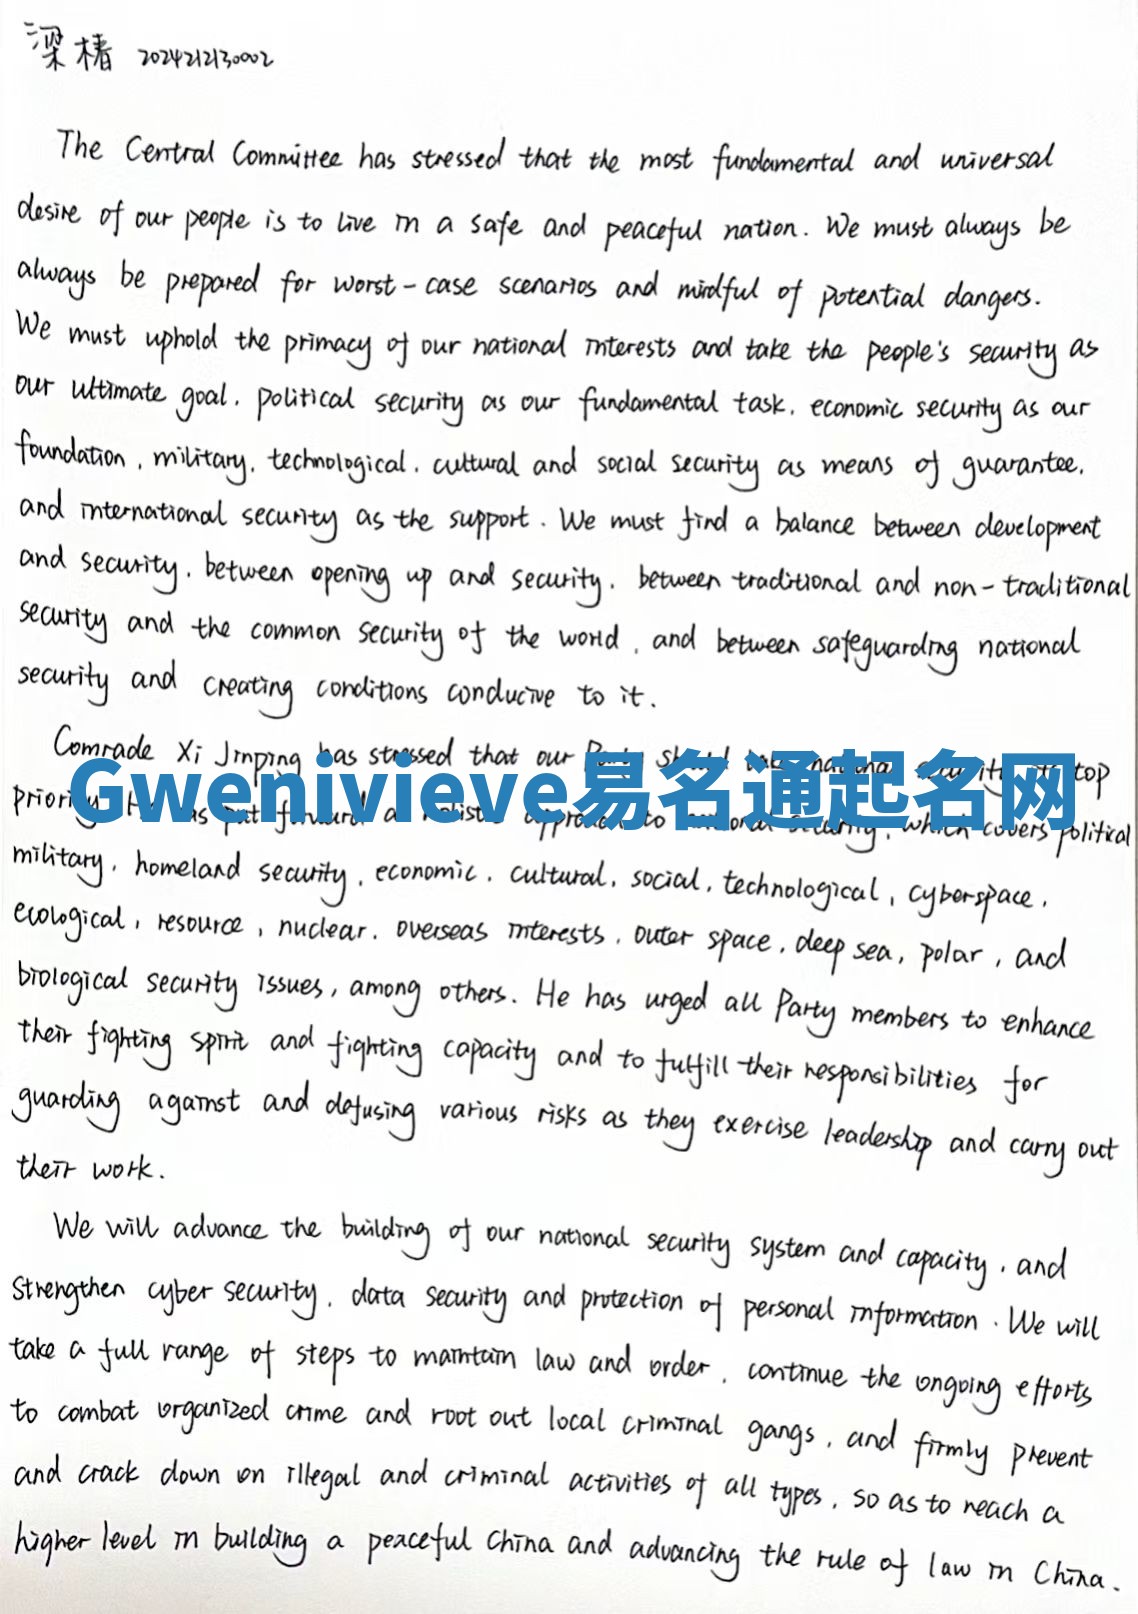 梁椿 2024212130002
The Central Committee has stressed that the most fundamental and universal
desire of our people is to live in a safe and peaceful nation. We must always be
always be prepared for worst-case scenarios and mindful of potential dangers.
We must uphold the primacy of our national interests and take the people's security as
our ultimate goal, political security as our fundamental task, economic security as our
foundation, military, technological, cultural and social security as means of guarantee,
and international security as the support. We must find a balance between development
and security, between opening up and security, between traditional and non-traditional
security and the common security of the world, and between safeguarding national
security and creating conditions conducive to it.
Comrade Xi Jinping has stressed that our Party should take national security its top
Gwenivieve易名通起名网
priority. He has put forward a holistic approach to national security, which covers political
military, homeland security, economic, cultural, social, technological, cyberspace,
ecological, resource, nuclear, overseas interests, outer space, deep sea, polar, and
biological security issues, among others. He has urged all Party members to enhance
their fighting spirit and fighting capacity and to fulfill their responsibilities for
guarding against and defusing various risks as they exercise leadership and carry out
their work.
We will advance the building of our national security system and capacity, and
strengthen cyber security, data security and protection of personal information. We will
take a full range of steps to maintain law and order, continue the ongoing efforts
to combat organized crime and root out local criminal gangs, and firmly prevent
and crack down on illegal and criminal activities of all types, so as to reach a
higher level in building a peaceful China and advancing the rule of law in China.